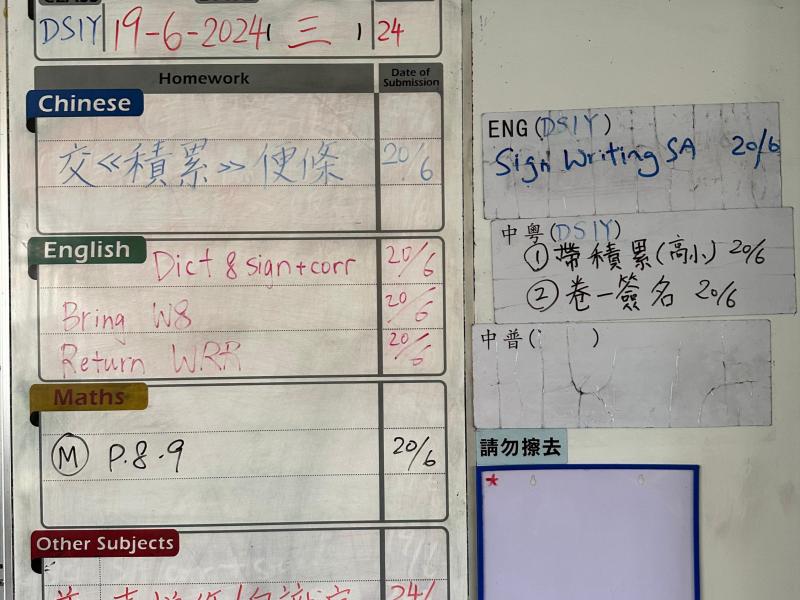 DS1Y 19-6-2024 ( 三 ) 24
Homework
Date of
Submission
Chinese
交《積累》便條 20/6
English
Dict 8 sign+corr 20/6
Bring W8 20/6
Return WRR 20/6
Maths
Ⓜ P.8-9 20/6
Other Subjects
24/
ENG (DS1Y)
Sign Writing SA 20/6
中粵(DS1Y)
① 帶積累(高小) 20/6
② 卷一簽名 20/6
中普( )
請勿擦去